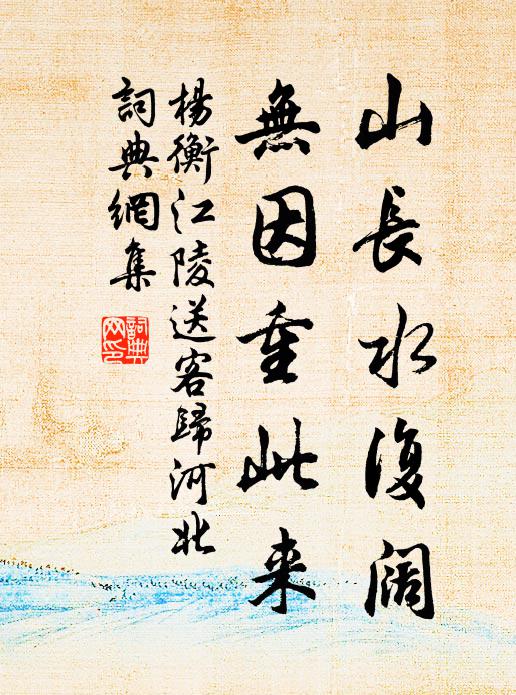 山長水復阔
無因重此来
楊衡江陵送客歸河北
詞典網集
詞典网印